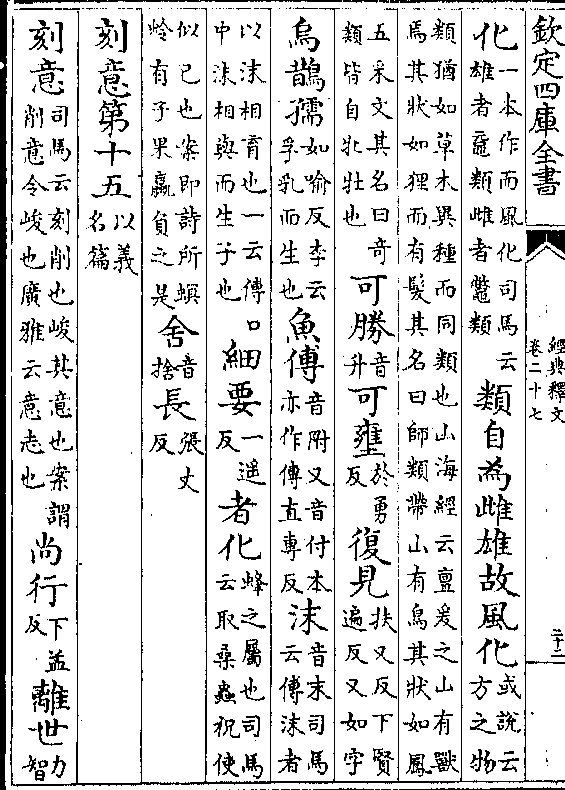 欽定四庫全書
經典釋文
卷二十七
二十二
化一本作而風化司馬云雄者黿類雌者鼈類類自為雌雄故風化或說云方之物
類猶如草木異種而同類也山海經云亶爰之山有獸焉其狀如狸而有髮其名曰師類帶山有鳥其狀如鳳
五采文其名曰奇類皆自牝牡也可勝音升可壅於勇反復見扶又反下賢遍反又如字
烏鵲孺如喻反李云孚乳而生也魚傅音附又音付本亦作傳直專反沫音末司馬云傳沫者
以沫相育也一云傳口中沫相與而生子也細要一遥反者化蜂之屬也司馬云取桑蟲祝使
似已也案即詩所螟蛉有子果蠃負之是舍音捨長張丈反
刻意第十五以義名篇
刻意司馬云刻削也峻其意也案謂削意令峻也廣雅云意志也尚行下孟反離世力智